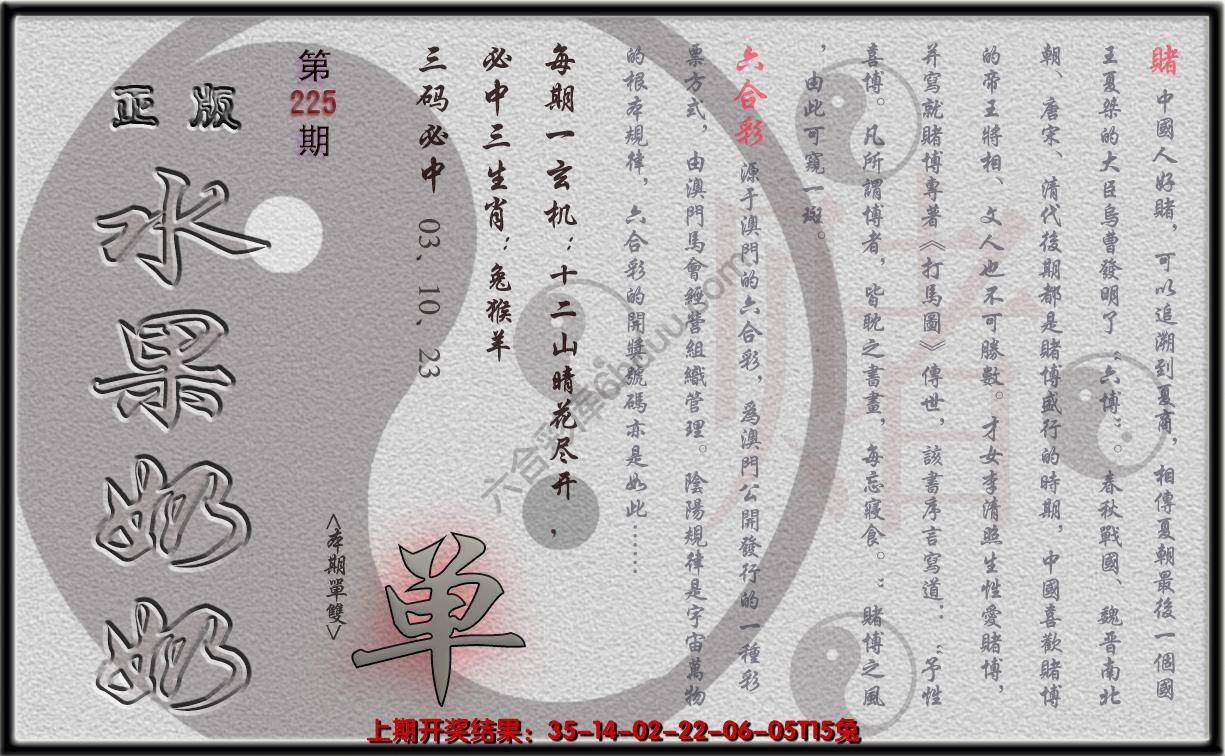 賭 中國人好賭，可以追溯到夏商，相傳夏朝最後一個國
王夏桀的大臣烏曹發明了“六博”。春秋戰國、魏晋南北
朝、唐宋、清代後期都是賭博盛行的時期，中國喜歡賭博
的帝王將相、文人也不可勝數。才女李清照生性愛賭博，
并寫就賭博專著《打馬圖》傳世，該書序言寫道：“予性
喜博。凡所謂博者，皆耽之書畫，每忘寢食。”賭博之風
，由此可窺一斑。
六合彩 源于澳門的六合彩，爲澳門公開發行的一種彩
票方式，由澳門馬會經營組織管理。陰陽規律是宇宙萬物
的根本規律，六合彩的開獎號碼亦是如此……
每期一玄机：十二山晴花尽开，
必中三生肖：兔猴羊
三码必中 03、10、23
第225期
正版
水果奶奶
<本期單雙>
单
上期开奖结果：35-14-02-22-06-05T15兔
賭